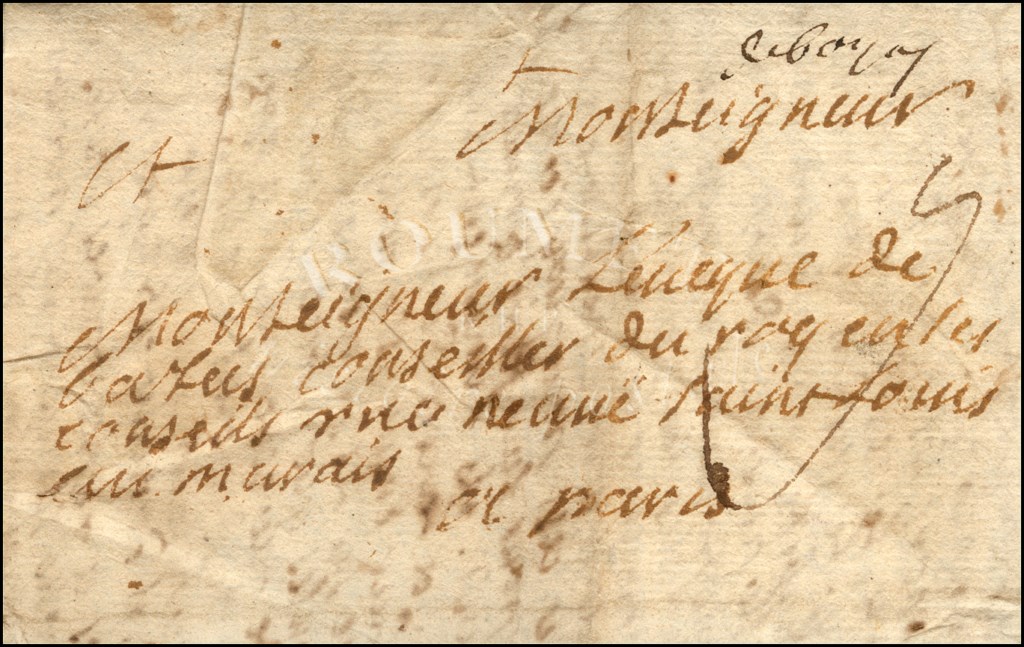 De boyoy
Monseigneur
Monseigneur Leveque de
conseiller du roy en ses
conseils rue neuve saint louis
au marais
a paris
ROUM